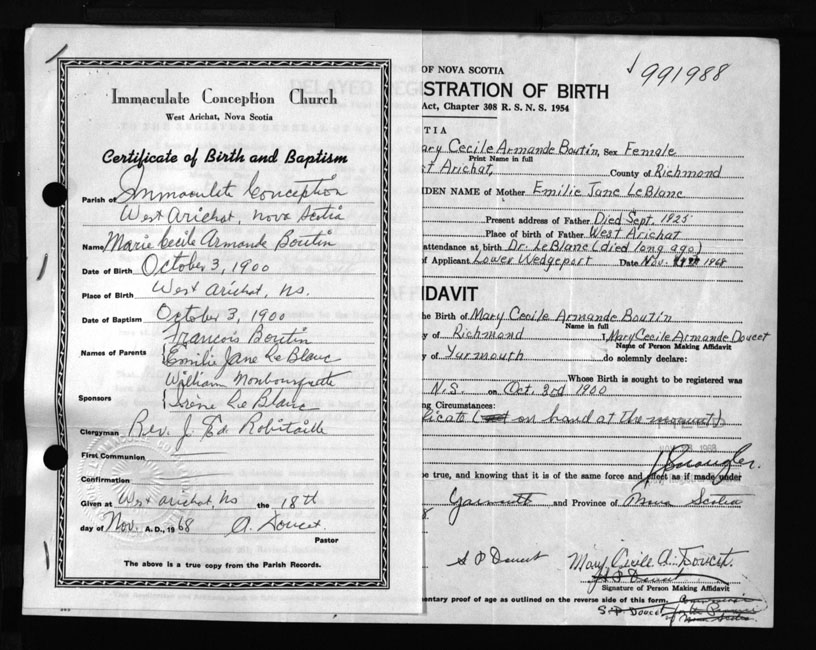 Immaculate Conception Church
West Arichat, Nova Scotia
Certificate of Birth and Baptism
Parish of Immaculate Conception
West Arichat, Nova Scotia
Name Marie Cecile Armande Boutin
Date of Birth October 3, 1900
Place of Birth West Arichat, NS.
Date of Baptism October 3, 1900
Francois Boutin
Names of Parents Emilie Jane Le Blanc
William
Sponsors Irène Le Blanc
Clergyman Rev. J. Ed. Robitaille
First Communion
Confirmation
Given at West Arichat, NS the 18th
day of Nov. A.D., 1968 A. Doucet
Pastor
The above is a true copy from the Parish Records.
OF NOVA SCOTIA
991988
STRATION OF BIRTH
Act, Chapter 308 R. S. N. S. 1954
TIA
ary Cecile Armande Boutin, Sex Female
Print Name in full
st Arichat, County of Richmond
IDEN NAME of Mother Emilie Jane LeBlanc
Present address of Father Died Sept. 1925
Place of birth of Father West Arichat
attendance at birth Dr. LeBlanc (died long ago)
of Applicant Lower Wedgeport Date Nov. 1968
IDAVIT
the Birth of Mary Cecile Armande Boutin
Name in full
y of Richmond I, Mary Cecile Armande Doucet
Name of Person Making Affidavit
y of Yarmouth do solemnly declare:
Whose Birth is sought to be registered was
N.S. on Oct. 3rd 1900
ng Circumstances:
licate ( on hand at the moment)
be true, and knowing that it is of the same force and effect as if made under
Yarmouth and Province of Nova Scotia
S P Doucet Mary Cecile A. Doucet
S P Doucet
Signature of Person Making Affidavit
mentary proof of age as outlined on the reverse side of this form.
S. P Doucet